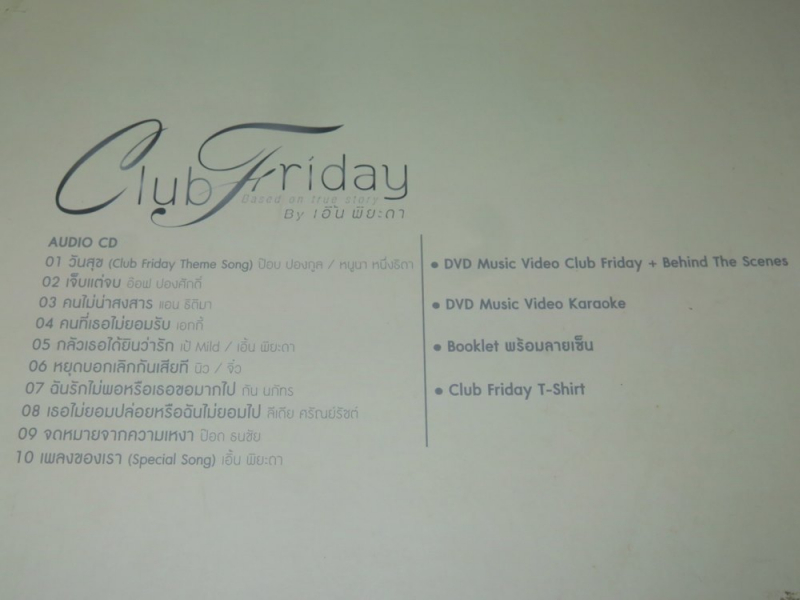 Club Friday
Based on true story
By เอิ้น พิยะดา
AUDIO CD
01 วันสุข (Club Friday Theme Song) ป๊อบ ปองกูล / หนูนา หนึ่งธิดา
02 เจ็บแต่จบ อ๊อฟ ปองศักดิ์
03 คนไม่น่าสงสาร แอน ธิติมา
04 คนที่เธอไม่ยอมรับ เอกกี้
05 กลัวเธอได้ยินว่ารัก เป้ Mild / เอิ้น พิยะดา
06 หยุดบอกเลิกกันเสียที นิว / จิ๋ว
07 ฉันรักไม่พอหรือเธอขอมากไป กัน นภัทร
08 เธอไม่ยอมปล่อยหรือฉันไม่ยอมไป ลีเดีย ศรัณย์รัชต์
09 จดหมายจากความเหงา ป๊อด ธนชัย
10 เพลงของเรา (Special Song) เอิ้น พิยะดา
• DVD Music Video Club Friday + Behind The Scenes
• DVD Music Video Karaoke
• Booklet พร้อมลายเซ็น
• Club Friday T-Shirt